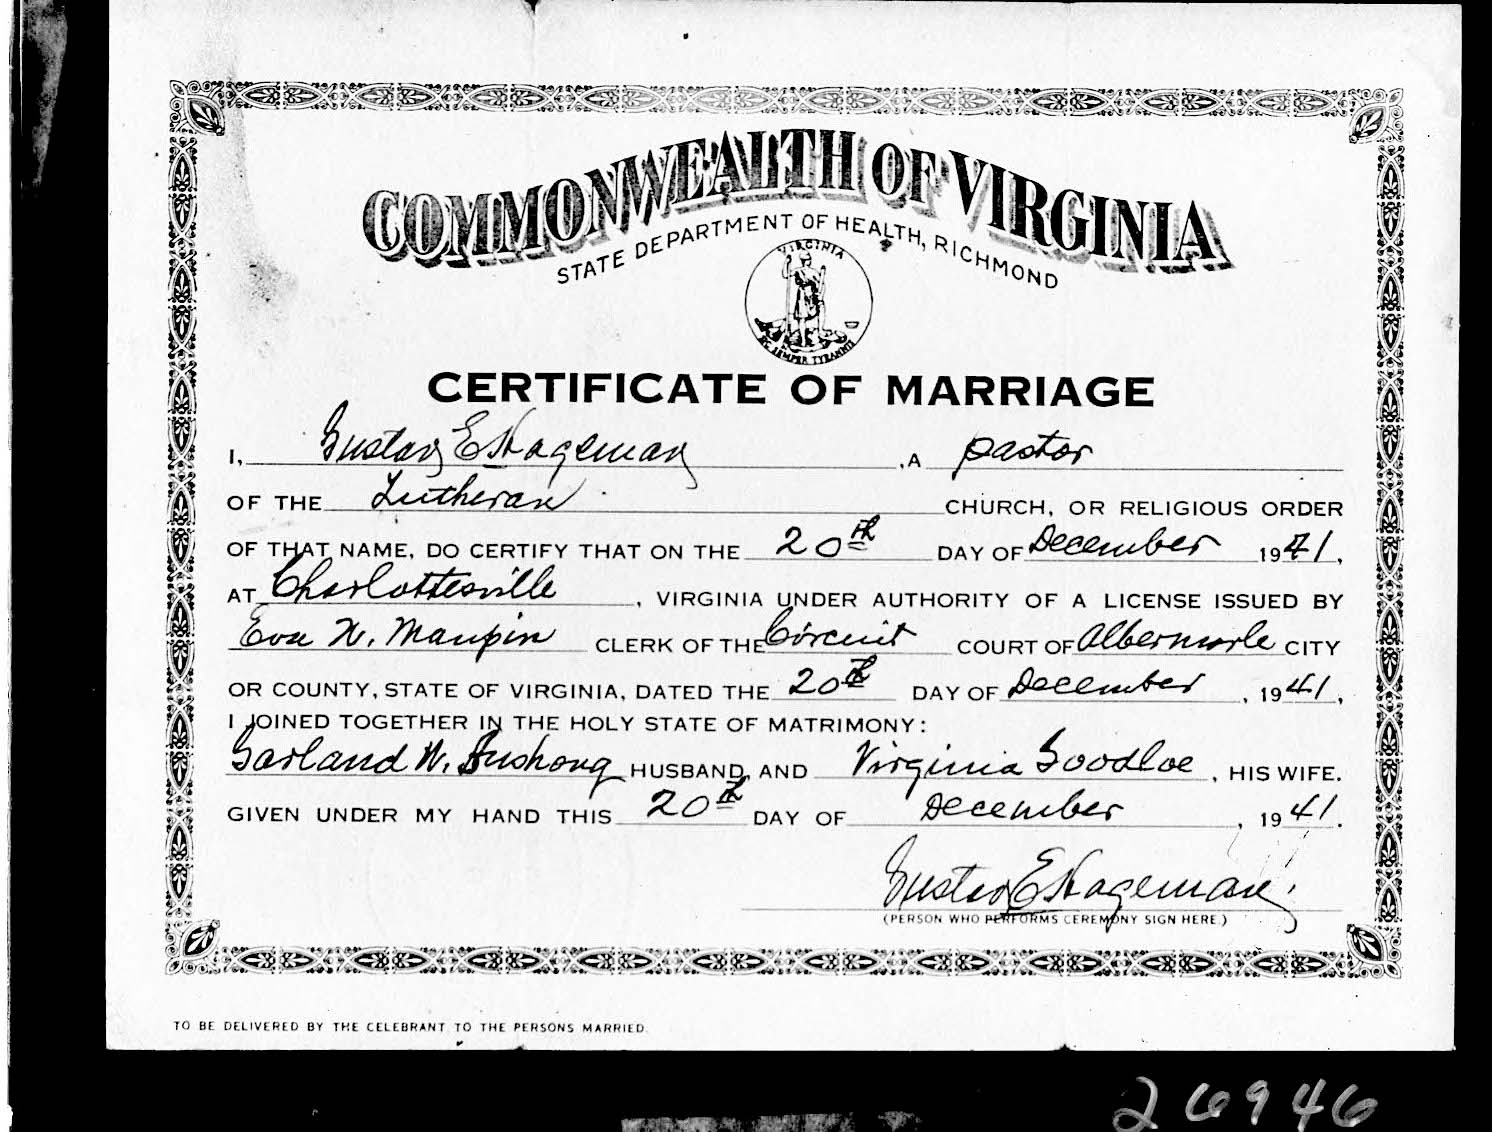 COMMONWEALTH OF VIRGINIA
STATE DEPARTMENT OF HEALTH, RICHMOND
VIRGINIA
SIC SEMPER TYRANNIS
CERTIFICATE OF MARRIAGE
I, Gustav E Hageman, A pastor
OF THE Lutheran CHURCH, OR RELIGIOUS ORDER
OF THAT NAME, DO CERTIFY THAT ON THE 20th DAY OF December 1941,
AT Charlottesville, VIRGINIA UNDER AUTHORITY OF A LICENSE ISSUED BY
Eva W. Maupin CLERK OF THE Circuit COURT OF Albermarle CITY
OR COUNTY, STATE OF VIRGINIA, DATED THE 20th DAY OF December, 1941,
I JOINED TOGETHER IN THE HOLY STATE OF MATRIMONY:
Garland W. Bushong HUSBAND, AND Virginia Goodloe, HIS WIFE.
GIVEN UNDER MY HAND THIS 20th DAY OF December, 1941.
Gustav E Hageman
(PERSON WHO PERFORMS CEREMONY SIGN HERE.)
TO BE DELIVERED BY THE CELEBRANT TO THE PERSONS MARRIED.
26946